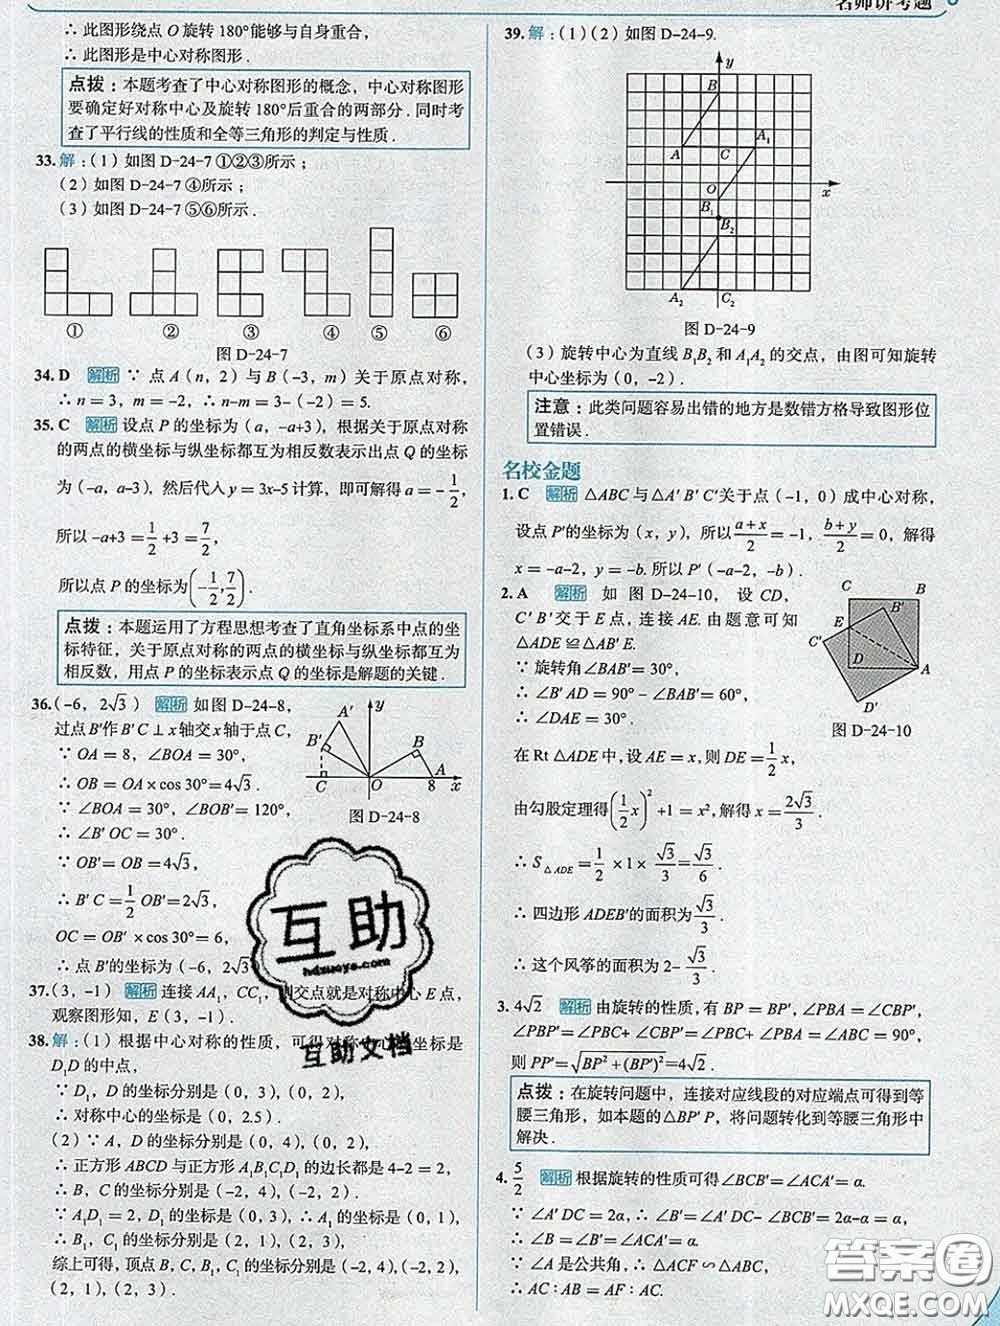 名师讲考题
∴ 此图形绕点 O 旋转 180°能够与自身重合,
∴ 此图形是中心对称图形.
点拨：本题考查了中心对称图形的概念，中心对称图形
要确定好对称中心及旋转 180°后重合的两部分. 同时考
查了平行线的性质和全等三角形的判定与性质.
33. 解：(1) 如图 D-24-7 ①②③所示；
(2) 如图 D-24-7 ④所示；
(3) 如图 D-24-7 ⑤⑥所示.
① ② ③ ④ ⑤ ⑥
图 D-24-7
34. D 解析 ∵ 点 A (n, 2) 与 B (-3, m) 关于原点对称,
∴ n = 3, m = -2, ∴ n-m = 3-(-2) = 5.
35. C 解析 设点 P 的坐标为 (a, -a+3)，根据关于原点对称
的两点的横坐标与纵坐标都互为相反数表示出点 Q 的坐标
为 (-a, a-3)，然后代入 y = 3x-5 计算，即可解得 a = -1/2,
所以 -a+3 = 1/2 +3 = 7/2,
所以点 P 的坐标为 (-1/2, 7/2).
点拨：本题运用了方程思想考查了直角坐标系中点的坐
标特征，关于原点对称的两点的横坐标与纵坐标都互为
相反数，用点 P 的坐标表示点 Q 的坐标是解题的关键.
36. (-6, 2√3) 解析 如图 D-24-8,
过点 B′作 B′C ⊥ x 轴交 x 轴于点 C,
∵ OA = 8, ∠BOA = 30°,
∴ OB = OA × cos 30° = 4√3.
∵ ∠BOA = 30°, ∠BOB′ = 120°,
∴ ∠B′OC = 30°.
∵ OB′ = OB = 4√3,
∴ B′C = 1/2 OB′ = 2√3,
OC = OB′ × cos 30° = 6,
∴ 点 B′的坐标为 (-6, 2√3
A′ y B′ B A C O 8 x
图 D-24-8
37. (3, -1) 解析 连接 AA₁, CC₁, 则交点就是对称中心 E 点,
观察图形知, E (3, -1).
38. 解：(1) 根据中心对称的性质，可得对称中心 坐标是
D₁D 的中点,
∵ D₁, D 的坐标分别是 (0, 3), (0, 2),
∴ 对称中心的坐标是 (0, 2.5).
(2) ∵ A, D 的坐标分别是 (0, 4), (0, 2),
∴ 正方形 ABCD 与正方形 A₁B₁C₁D₁ 的边长都是 4-2 = 2,
∴ B, C 的坐标分别是 (-2, 4), (-2, 2).
∵ A₁D₁ = 2, D₁ 的坐标是 (0, 3), ∴ A₁ 的坐标是 (0, 1),
∴ B₁, C₁ 的坐标分别是 (2, 1), (2, 3).
综上可得，顶点 B, C, B₁, C₁ 的坐标分别是 (-2, 4), (-2, 2),
(2, 1), (2, 3).
互助
hdzuoye.com
互助文档
39. 解：(1)(2) 如图 D-24-9.
y B A₁ A C O x B₁ B₂ A₂ C₂
图 D-24-9
(3) 旋转中心为直线 B₁B₂ 和 A₁A₂ 的交点，由图可知旋转
中心坐标为 (0, -2).
注意：此类问题容易出错的地方是数错方格导致图形位
置错误.
名校金题
1. C 解析 △ABC 与 △A′B′C′关于点 (-1, 0) 成中心对称,
设点 P′的坐标为 (x, y)，所以 (a+x)/2 = -1, (b+y)/2 = 0, 解得
x = -a-2, y = -b. 所以 P′(-a-2, -b).
2. A 解析 如图 D-24-10, 设 CD,
C′B′交于 E 点，连接 AE. 由题意可知
△ADE ≌ △AB′E.
∵ 旋转角 ∠BAB′ = 30°,
∴ ∠B′AD = 90° - ∠BAB′ = 60°.
∴ ∠DAE = 30°.
在 Rt △ADE 中，设 AE = x, 则 DE = 1/2 x,
由勾股定理得 (1/2 x)² +1 = x², 解得 x = 2√3/3.
∴ S△ADE = 1/2 × 1 × √3/3 = √3/6.
∴ 四边形 ADEB′的面积为 √3/3.
∴ 这个风筝的面积为 2- √3/3.
C B B′ E C′ D A D′
图 D-24-10
3. 4√2 解析 由旋转的性质，有 BP = BP′, ∠PBA = ∠CBP′,
∠PBP′ = ∠PBC+ ∠CBP′ = ∠PBC+ ∠PBA = ∠ABC = 90°,
则 PP′ = √(BP² + (BP′)²) = 4√2.
点拨：在旋转问题中，连接对应线段的对应端点可得到等
腰三角形，如本题的△BP′P，将问题转化到等腰三角形中
解决.
4. 5/2 解析 根据旋转的性质可得 ∠BCB′ = ∠ACA′ = α.
∵ ∠A′DC = 2α, ∴ ∠B = ∠A′DC- ∠BCB′ = 2α-α = α.
∴ ∠B = ∠B′ = ∠ACA′ = α.
∵ ∠A 是公共角, ∴ △ACF ∽ △ABC.
∴ AC : AB = AF : AC.
答案圈
MXQE.COM